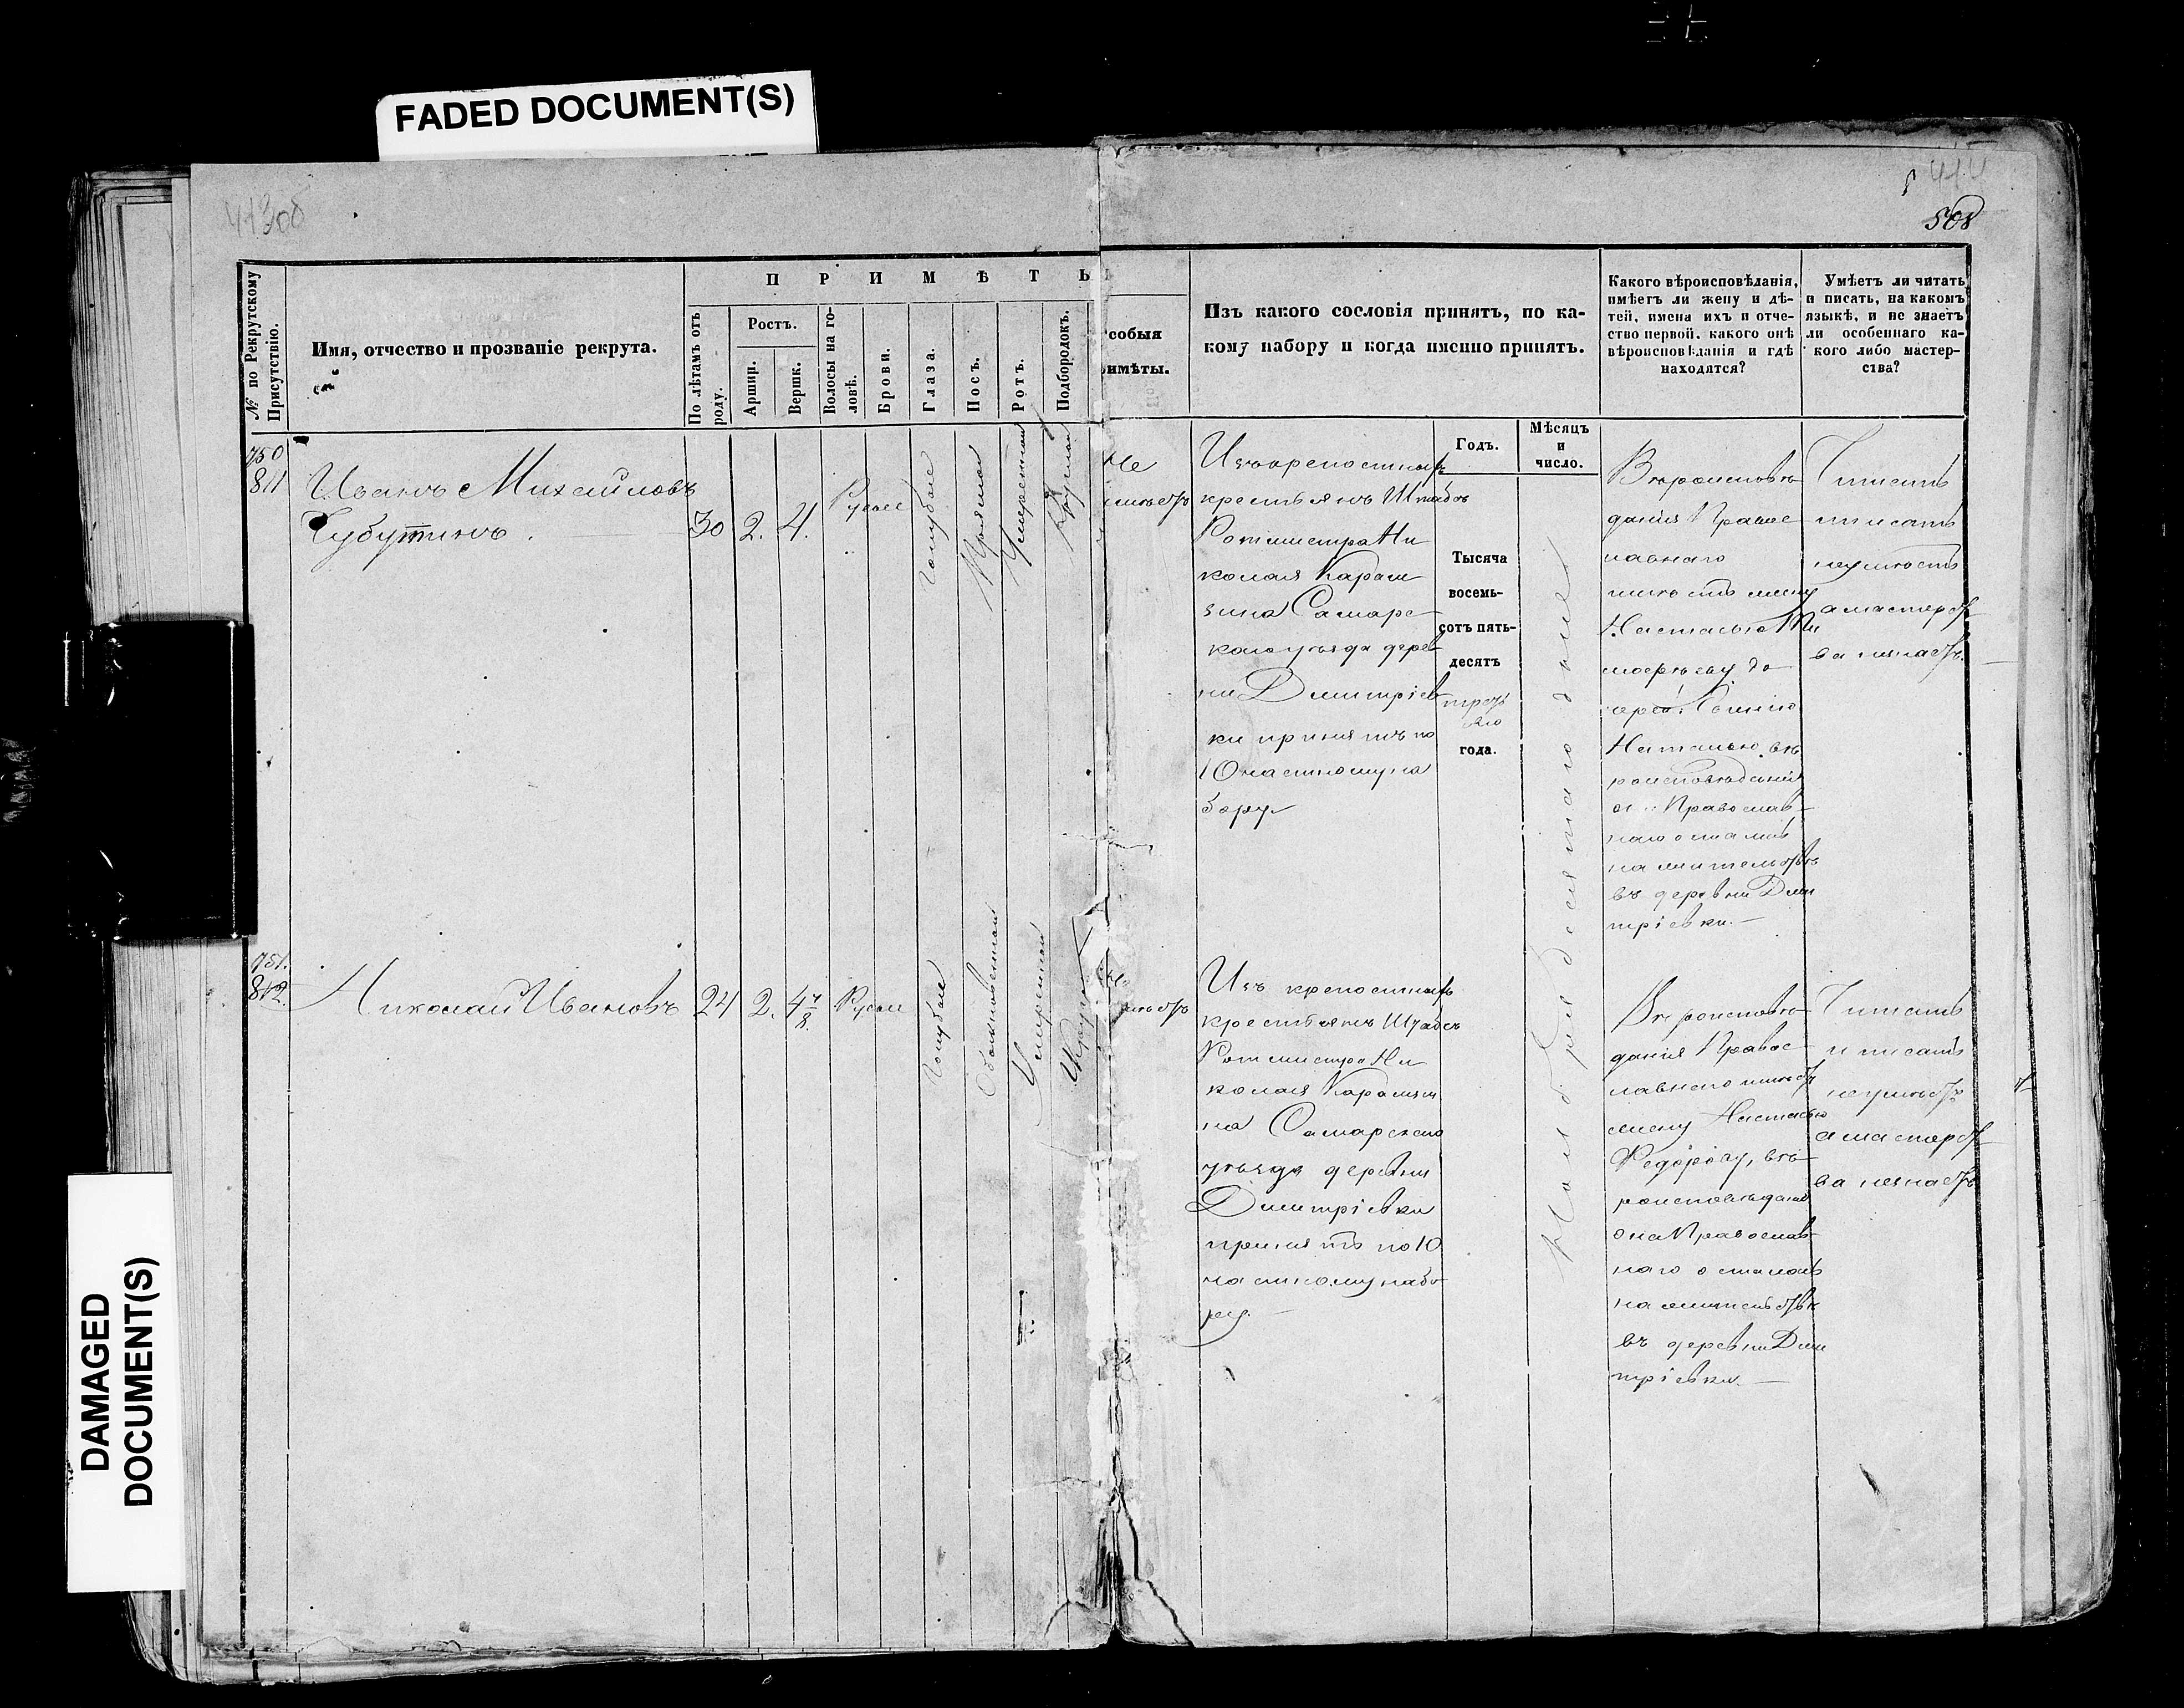 FADED DOCUMENT(S)
DAMAGED
DOCUMENT(S)
413об
414
508
№ по Рекрутскому
Присутствію.
Имя, отчество и прозваніе рекрута.
П Р И М Ѣ Т Ы
По лѣтамъ отъ
роду.
Ростъ.
Аршин.
Вершк.
Волосы на го-
ловѣ.
Брови.
Глаза.
Носъ.
Ротъ.
Подбородокъ.
собыя
имѣты.
Изъ какого сословія принятъ, по ка-
кому набору и когда именно принятъ.
Какого вѣроисповѣданія,
имѣетъ ли жену и дѣ-
тей, имена ихъ и отче-
ство первой, какого онѣ
вѣроисповѣданія и гдѣ
находятся?
Умѣетъ ли читать
и писать, на какомъ
языкѣ, и не знаетъ
ли особеннаго ка-
кого либо мастер-
ства?
Годъ.
Мѣсяцъ
и
число.
750
811
Иванъ Михайловъ
Чубуткинъ.
30
2.
4.
Русые
голубые
Прямой
Умеренной
Круглой
Не
имѣетъ
Изъ крепостныхъ
крестьянъ Штабсъ
Ротмистра Ни
колая Карам
зина Самарс
кого уѣзда дерев
ни Дмитріев
ки принятъ по
10 частному на
бору
Тысяча
восемь-
сотъ пять-
десятъ
третьяго
года.
Вѣроисповѣ
данія Правос
лавнаго
имѣетъ жену
Настасью Ти
мофѣеву до
черей
Наталью, вѣ
роисповѣданія
Православ
наго остались
на жительствѣ
въ деревни Дми
тріевки.
Читать
писать
неумѣетъ
а мастерст
ва незнаетъ.
751.
812.
Николай Ивановъ
24
2.
4⅞
Русые
Голубые
Обыкновенной
Умеренной
Круглой
имѣетъ
Изъ крепостныхъ
крестьянъ Штабсъ
Ротмистра Ни
колая Карамзи
на Самарскаго
уѣзда деревни
Дмитріевки
принятъ по 10
частному набо
ру.
Вѣроисповѣ
данія Правос
лавнаго имѣетъ
жену Настасью
Федорову, вѣ
роисповѣданія
она Православ
наго осталась
на жительствѣ
въ деревни Дми
тріевки.
Читать
и писать
неумѣетъ
а мастерст
ва незнаетъ